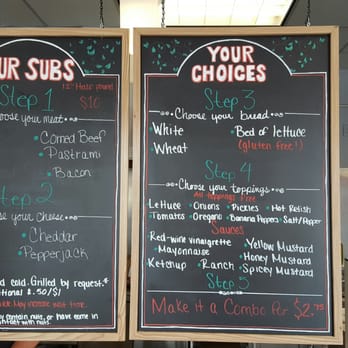 UR SUBS
Step 1
12" Half pound
$10
oose your meat
Corned Beef
Pastrami
Bacon
ep 2
se your cheese
Cheddar
Pepperjack
d cold. Grilled by request.
tional $.50/$1
May increase wait time.
y contain nuts, or have come in
contact with nuts.
YOUR
CHOICES
Step 3
Choose your bread
White
Wheat
Bed of lettuce
(gluten free!)
Step 4
Choose your toppings
All toppings free
Lettuce Onions Pickles Hot Relish
Tomatoes Oregano Banana Peppers Salt/Pepper
Sauces
Red-wine vinaigrette
Mayonnaise
Ketchup Ranch
Yellow Mustard
Honey Mustard
Spicey Mustard
Step 5
Make it a Combo For $2.75